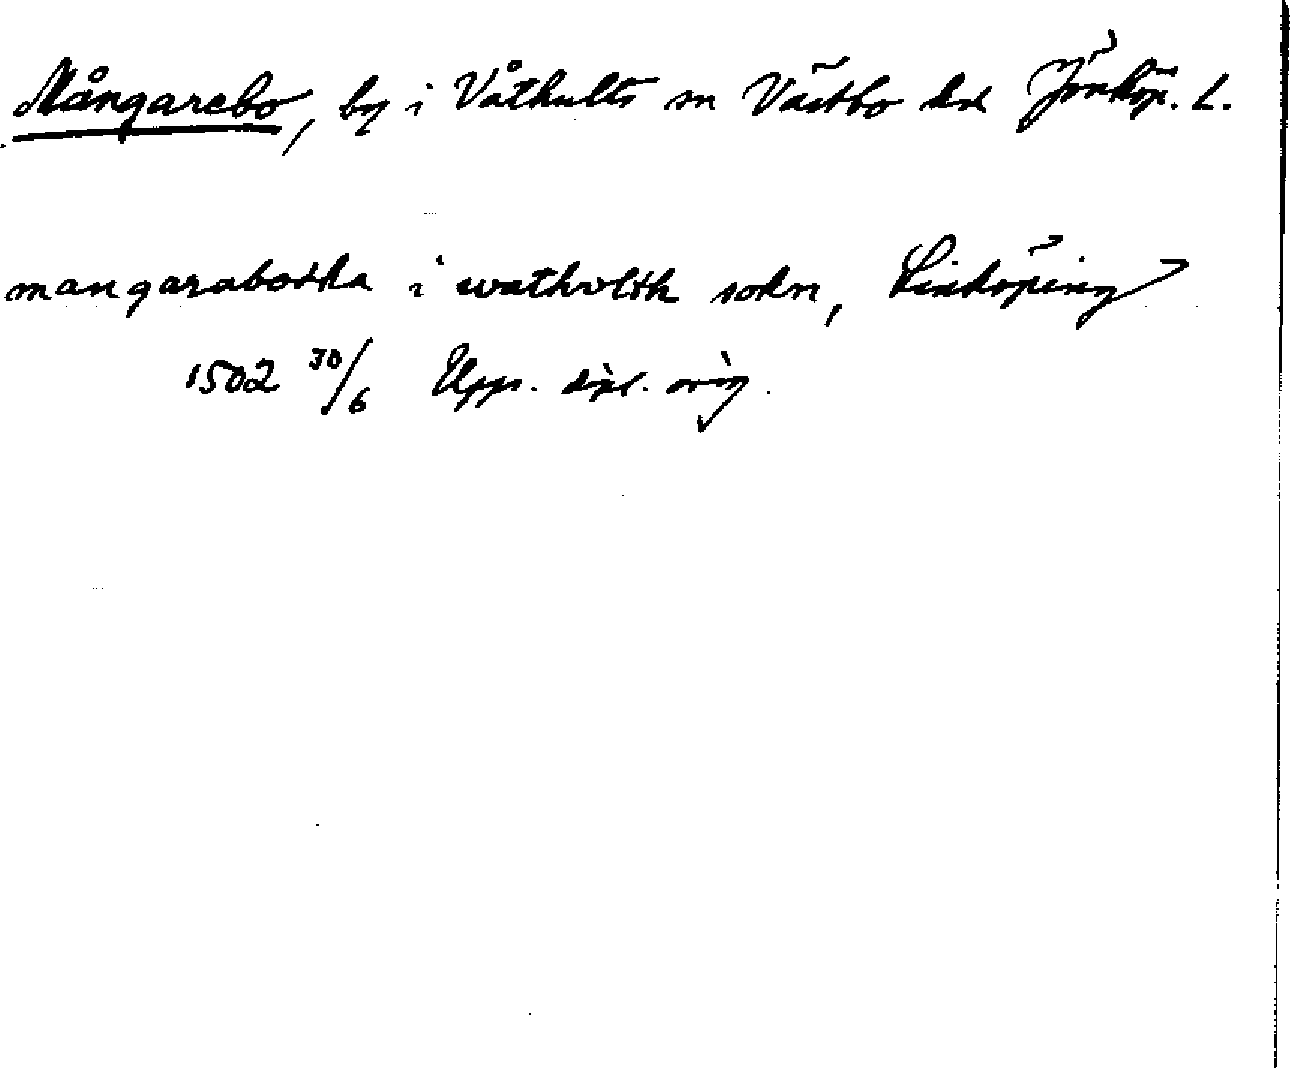 Mångarebo, by i Våthults sn Västbo hd Jönköp. L.
mangarabodha i watholth sokn, Linköping
1502 30/6 Upps. dipl. orig.